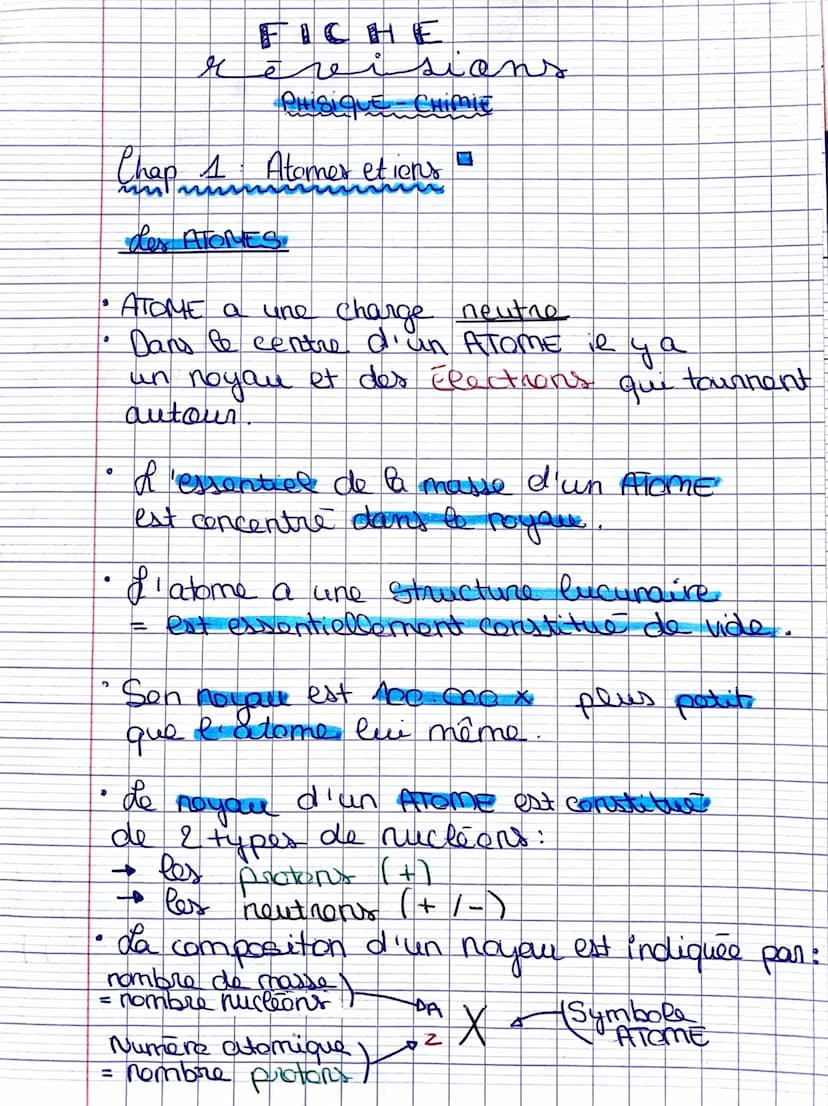 FICHE
révisions
PHISIQUE - CHIMIE
Chap 1 : Atomes et ions
des ATOMES
• ATOME a une charge neutre
• Dans le centre d'un ATOME il y a
un noyau et des Électrons qui tournant
autour.
• L'essentiel de la masse d'un ATOME
est concentré dans le noyau.
• L'atome a une structure lucunaire
= est essentiellement constitué de vide.
• Son noyau est 100.000 x plus petit
que l'atome lui même.
• Le noyau d'un ATOME est constitué
de 2 types de nucléons :
→ les protons (+)
→ les neutrons (+ / -)
• La compositon d'un noyau est indiquée par :
nombre de masse
= nombre nucléons
A
X
Symbole
ATOME
Numéro atomique
Z
= nombre protons